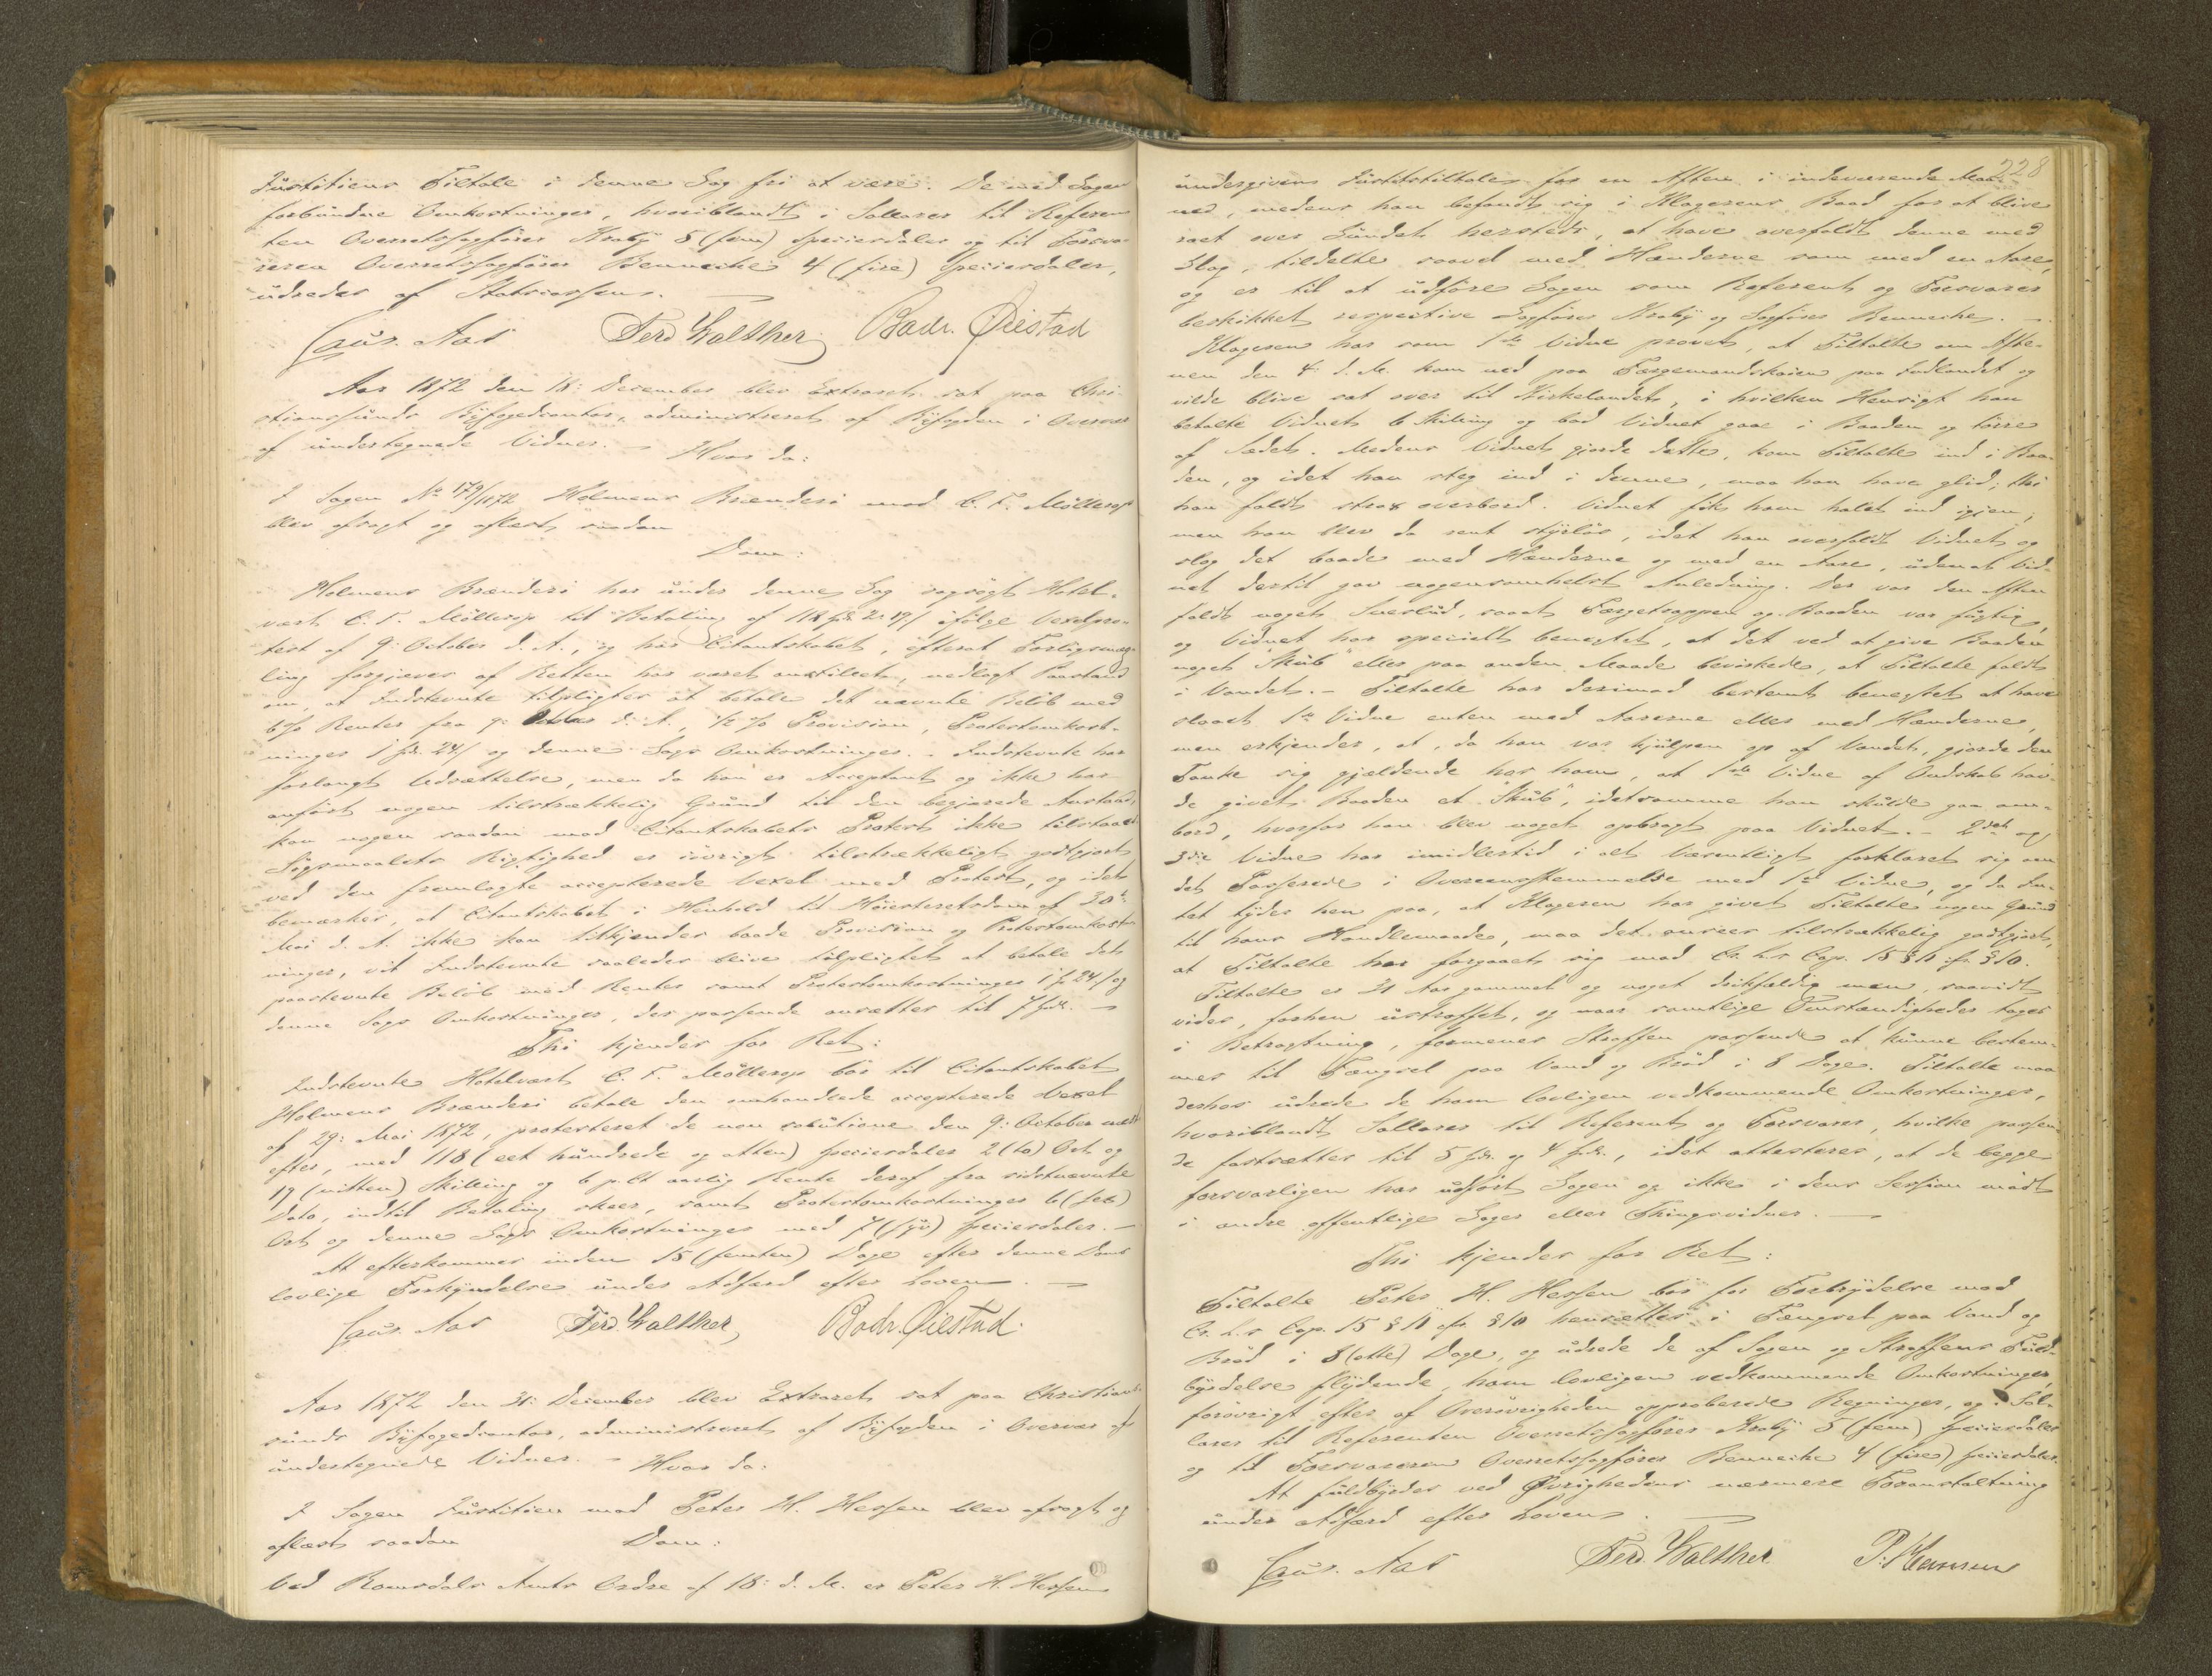 Justitiens Tiltale i denne Sag fri at være. De med Sagen
forbundne Omkostninger, hvoriblandt i Sallarer til Referen
ten Overretssagfører Kraby 5 (fem) Speciesdaler og til Forsva-
reren Overretssagfører Benneche 4 (fire) Speciesdaler,
udredes af Statscassen.
Laur. Aas Ferd Walther Badr. Øiestad
Aar 1872 den 18: December blev Extraret sat paa Chri-
stianssunds Byfogedcontor, administreret af Byfogden i Overvær
af undertegnede Vidner. – Hvor da:
I Sagen No 179/1872 Holmens Brænderi mod C. F. Möllerop
blev afsagt og aflæst saadan
Dom:
Holmens Brænderi har under denne Sag sagsögt Hotel-
vært C. F. Möllerop til Betaling af 118 Spd. 2 19 / ifölge Vexelpro-
test af 9: October d. A., og har Citantskabet, efterat Forligsmæg-
ling forgjæves af Retten har været anstillet, nedlagt Paastand
om, at Indstevnte tilpligtes at betale det nævnte Belöb med
6 % Renter fra 9: October d. A., 1/2 % Provision, Protestomkost-
ninger 1 Spd. 24 / og denne Sags Omkostninger. – Indstevnte har
forlangt Udsættelse, men da han er Acceptant og ikke har
anfört nogen tilstrækkelig Grund til den begjærede Anstand,
kan nogen saadan mod Citantskabets Protest ikke tilstaaes
Sögsmaalets Rigtighed er iövrigt tilstrækkeligt godtgjort
ved den fremlagte accepterede Vexel med Protest, og idet
bemærkes, at Citantskabet i Henhold til Höiesteretsdom af 30te
Mai d. A. ikke kan tilkjendes baade Provision og Protestomkost-
ninger, vil Indstevnte saaledes blive tilpligtet at betale det
paastevnte Belöb med Renter samt Protestomkostninger 1 Spd 24 / og
denne Sags Omkostninger, der passende ansættes til 7 Spd. –
Thi kjendes for Ret:
Indstevnte Hotelvært C. F. Möllerop bör til Citantskabet
Holmens Brænderi betale den omhandlede accepterede Vexel
af 29: Mai 1872, protesteret de non solutione den 9: October næst
efter, med 118 (eet hundrede og atten) Speciesdaler 2 (to) Ort og
19 (nitten) Skilling og 6 p. Ct aarlig Rente deraf fra sidstnævnte
Dato, indtil Betaling skeer, samt Protestomkostninger 6 (sex)
Ort og denne Sags Omkostninger med 7 (syv) Speciesdaler. –
At efterkommes inden 15 (femten) Dage efter denne Doms
lovlige Forkyndelse under Adfærd efter Loven. –
Laur. Aas Ferd. Walther, Badr. Øiestad.
Aar 1872 den 31: December blev Extraret sat paa Christians-
sunds Byfogedcontor, administreret af Byfogden i Overvær af
undertegnede Vidner. – Hvor da:
I Sagen Justitien mod Peter H. Hessen blev afsagt og
aflæst saadan Dom:
Ved Romsdals Amts Ordre af 18: d. M. er Peter H. Hessen
228
undergiven Justitstiltale for en Aften i indeværende Maa-
ned, medens han befandt sig i Klagerens Baad for at blive
roet over Sundet hersteds, at have overfaldt denne med
Slag, tildelte saavel med Hænderne som med en Aare,
og er til at udföre Sagen som Referent og Forsvarer
beskikket respective Sagförer Kraby og Sagförer Benneche. –
Klageren har som 1ste Vidne provet, at Tiltalte om Afte-
nen den 4: d. M. kom ned paa Færgemandskaien paa Indlandet og
vilde blive sat over til Kirkelandet, i hvilken Hensigt han
betalte Vidnet 6 Skilling og bad Vidnet gaae i Baaden og törre
af Sædet. Medens Vidnet gjorde dette, kom Tiltalte ind i Baa-
den, og idet han steg ind i denne, maa han have glid; thi
han faldt strax overbord. Vidnet fik ham halet ind igjen;
men han blev da rent styrlös, idet han overfaldt Vidnet og
slog det baade med Hænderne og med en Aare, uden at Vid-
net dertil gav nogensomhelst Anledning. Der var den Aften
faldt noget Sneslud, saaat Færgetrappen og Baaden var fugtig,
og Vidnet har specielt benegtet, at det ved at give Baaden
noget "Skub" eller paa anden Maade bevirkede, at Tiltalte faldt
i Vandet. – Tiltalte har derimod bestemt benegtet at have
slaaet 1ste Vidne enten med Aarerne eller med Hænderne,
men erkjender, at, da han var hjulpen op af Vandet, gjorde den
Tanke sig gjældende hos ham, at 1ste Vidne af Ondskab hav-
de givet Baaden et "Skub", idetsamme han skulde gaa om-
bord, hvorfor han blev noget opbragt paa Vidnet. – 2det og
3die Vidne har imidlertid i alt Væsentligt forklaret sig om
det Passerede i Overeensstemmelse med 1ste Vidne, og da In-
tet tyder hen paa, at Klageren har givet Tiltalte nogen Grund
til hans Handlemaade, maa det ansees tilstrækkelig godtgjort,
at Tiltalte har forgaaet sig mod Cr. L.s Cap. 15 § 11 cfr. § 10.
Tiltalte er 31 Aar gammel og noget drikfældig men, saavidt
vides, forhen ustraffet, og naar samtlige Omstændigheder tages
i Betragtning, formenes Straffen passende at kunne bestem-
mes til Fængsel paa Vand og Bröd i 8 Dage. Tiltalte maa
derhos udrede de ham lovligen vedkommende Omkostninger,
hvoriblandt Sallarer til Referent og Forsvarer, hvilke passen-
de fastsættes til 5 Spd. og 4 Spd., idet attesteres, at de begge
forsvarligen har udfört Sagen og ikke i dens Session mödt
i andre offentlige Sager eller Thingsvidner. –
Thi kjendes for Ret:
Tiltalte Peter H. Hessen bör for Forbrydelse mod
Cr. L.s Cap. 15 § 11 cfr. § 10 hensættes i Fængsel paa Vand og
Bröd i 8 (otte) Dage, og udrede de af Sagen og Straffens Fuld-
byrdelse flydende, ham lovligen vedkommende Omkostninger,
forövrigt efter af Overövrigheden approberede Regninger, og i Sal-
larer til Referenten Overretssagförer Kraby 5 (fem) Speciesdaler
og til Forsvareren Overretssagförer Benneche 4 (fire) Speciesdaler.
At fuldbyrdes ved Øvrighedens nærmere Foranstaltning
under Adfærd efter Loven. –
Laur. Aas Ferd. Walther P. Hansen